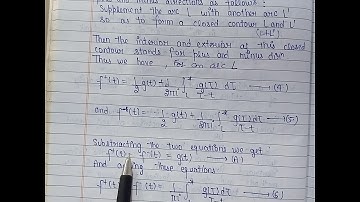 plus and minus directions as follows :
Supplement the arc L with another arc L'
so as to form a closed contour L and L'
(L+L')
Then the interior and exterior of this closed
contour stands for plus and minus dirn
Thus we have, for on arc L
f⁺(t) = 1/2 g(t) + 1/2πi ∫* g(τ)/τ-t dτ
and f⁻(t) = -1/2 g(t) + 1/2πi ∫* g(τ)dτ/τ-t —(5)
Substracting the two equations we get
f⁺(t) - f⁻(t) = g(t) —(A)
And adding these equations
f⁺(t) f⁻(t) = 1/πi ∫* g(τ)dτ/τ-t —(6)